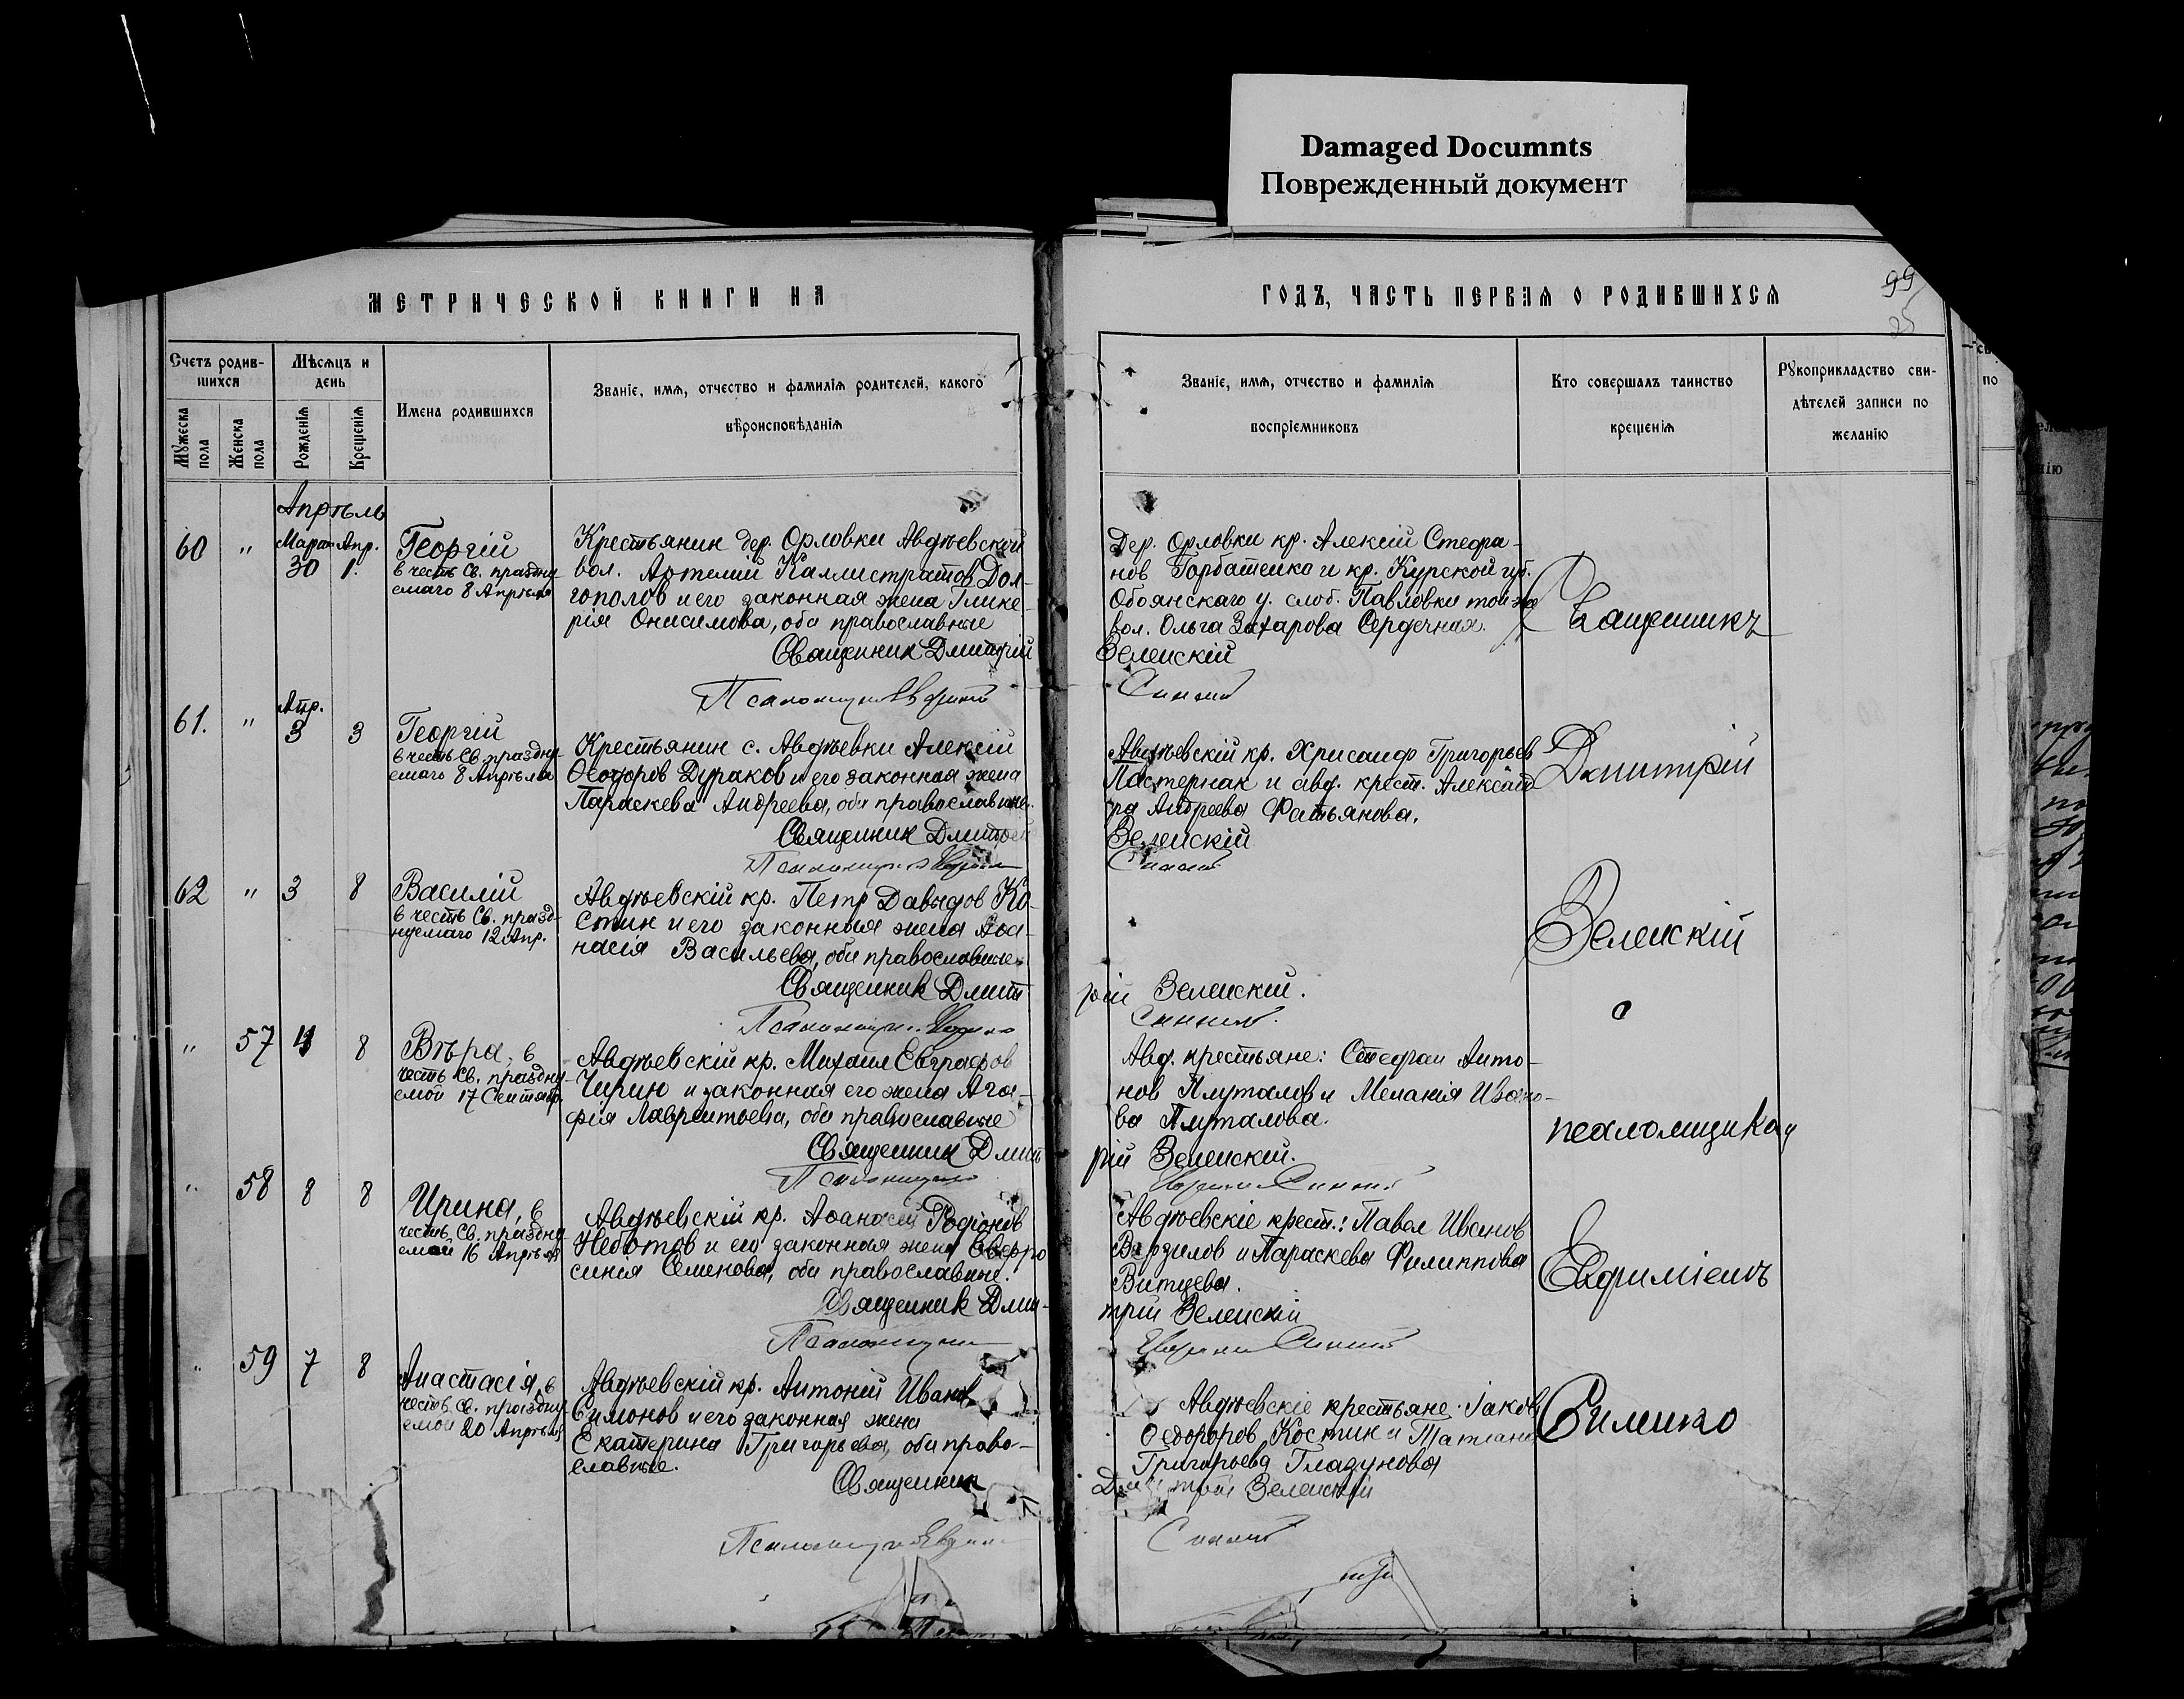 Damaged Documnts
Поврежденный документ
МЕТРИЧЕСКОЙ КНИГИ НА
ГОДЪ, ЧАСТЬ ПЕРВАЯ О РОДИВШИХСЯ
99
25
Счетъ родив-
шихся
Мужеска
пола
Женска
пола
Мѣсяцъ и
день
Рожденія
Крещенія
Имена родившихся
Званіе, имя, отчество и фамилія родителей, какого
вѣроисповѣданія
Званіе, имя, отчество и фамилія
воспріемниковъ
Кто совершалъ таинство
крещенія
Рукоприкладство сви-
дѣтелей записи по
желанію
Апрѣль
60 " Март 30 Апр. 1.
Георгій
в честь Св. праздну-
емаго 8 Апрѣля
Крестьянин дер. Орловки Авдѣевской
вол. Артемий Каллистратов Дол-
гополов и его законная жена Глике-
рія Онисимова, оба православные
Священник Дмитрій
Дер. Орловки кр. Алексій Стефа-
нов Горбатенко и кр. Курской губ.
Обоянскаго у. слоб. Павловки той же
вол. Ольга Захарова Сердечная.
Зеленскій
61. " Апр. 3 3
Георгій
в честь Св. праздну-
емаго 8 Апрѣля
Крестьянин с. Авдѣевки Алексій
Ѳеодоров Дураков и его законная жена
Параскева Андреева, оба православные.
Священник Дмитрій
Авдѣевскій кр. Хрисанф Григорьев
Пастернак и авд. крест. Александ
ра Андреева Фатьянова.
Зеленскій
62 " 3 8
Василій
в честь Св. празд-
нуемаго 12 Апр.
Авдѣевскій кр. Петр Давыдов Ко-
стин и его законная жена Аѳа-
насія Васильева, оба православные
Священник Дмит
рій Зеленскій.
" 57 4 8
Вѣра, в
честь Св. праздну-
емой 17 Сентябр.
Авдѣевскій кр. Михаил Евграфов
Чирин и законная его жена Ага-
фія Лаврентьева, оба православные
Священник Дмит
Авд. крестьяне: Стефан Анто-
нов Плуталов и Мелания Ивано-
ва Плуталова.
рій Зеленскій.
" 58 8 8
Ирина, в
честь Св. праздну-
емой 16 Апрѣля
Авдѣевскій кр. Аѳанасій Родіонов
Неботов и его законная жена Евфро
синія Семенова, оба православные.
Священник Дми-
Авдѣевскіе крест.: Павел Иванов
и Параскева Филиппова
трій Зеленскій
" 59 7 8
Анастасія, в
честь Св. праздну-
емой 20 Апрѣля
Авдѣевскій кр. Антоній Иванов
Симонов и его законная жена
Екатерина Григорьева, оба право-
славные.
Священник
Авдѣевскіе крестьяне: Іаков
Ѳеодоров Костин и Татіана
Григорьева Гладунова
Дмитрій Зеленскій
Священникъ
Дмитрій
Зеленскій
с
псаломщиком
Евфиміемъ